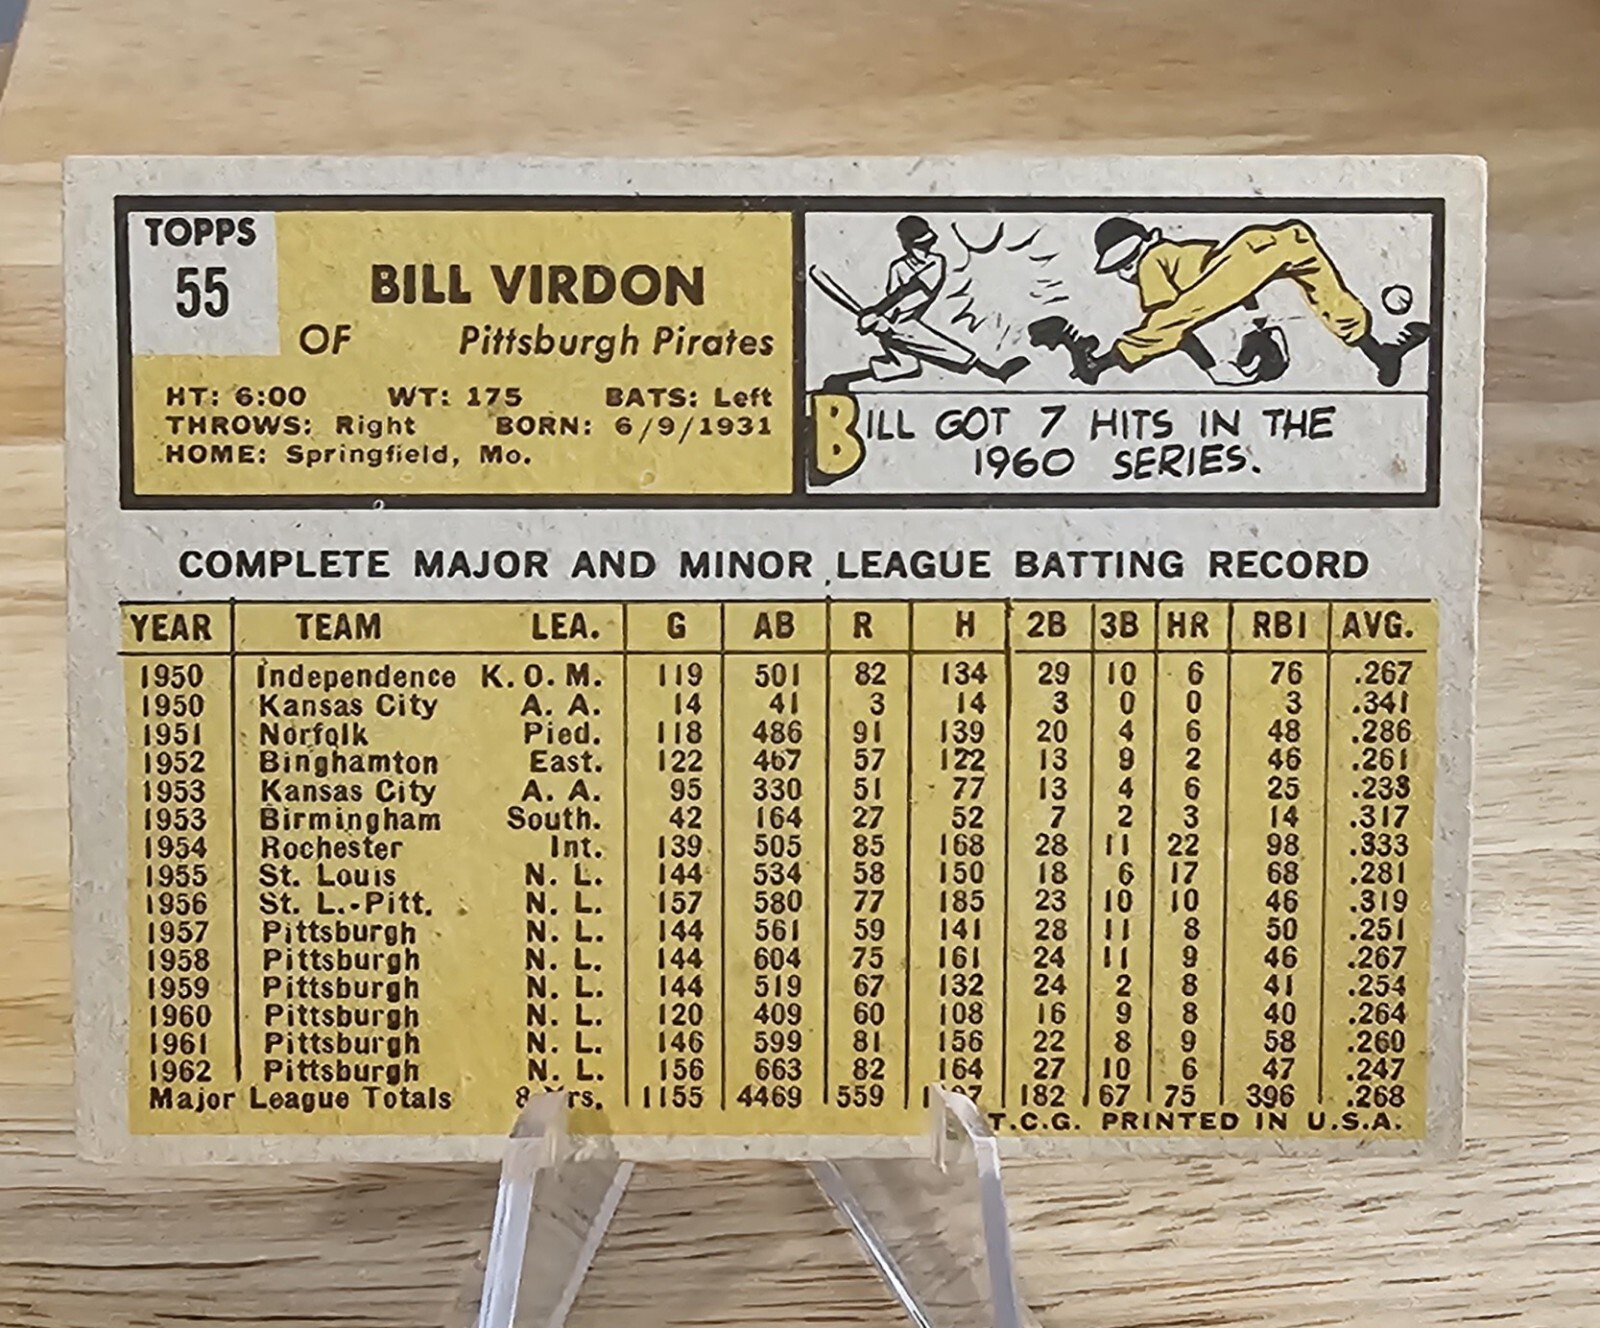 TOPPS
55
BILL VIRDON
OF Pittsburgh Pirates
HT: 6:00 WT: 175 BATS: Left
THROWS: Right BORN: 6/9/1931
HOME: Springfield, Mo.
BILL GOT 7 HITS IN THE
1960 SERIES.
COMPLETE MAJOR AND MINOR LEAGUE BATTING RECORD
YEAR TEAM LEA. G AB R H 2B 3B HR RBI AVG.
1950 Independence K. O. M. 119 501 82 134 29 10 6 76 .267
1950 Kansas City A. A. 14 41 3 14 3 0 0 3 .341
1951 Norfolk Pied. 118 486 91 139 20 4 6 48 .286
1952 Binghamton East. 122 467 57 122 13 9 2 46 .261
1953 Kansas City A. A. 95 330 51 77 13 4 6 25 .233
1953 Birmingham South. 42 164 27 52 7 2 3 14 .317
1954 Rochester Int. 139 505 85 168 28 11 22 98 .333
1955 St. Louis N. L. 144 534 58 150 18 6 17 68 .281
1956 St. L.-Pitt. N. L. 157 580 77 185 23 10 10 46 .319
1957 Pittsburgh N. L. 144 561 59 141 28 11 8 50 .251
1958 Pittsburgh N. L. 144 604 75 161 24 11 9 46 .267
1959 Pittsburgh N. L. 144 519 67 132 24 2 8 41 .254
1960 Pittsburgh N. L. 120 409 60 108 16 9 8 40 .264
1961 Pittsburgh N. L. 146 599 81 156 22 8 9 58 .260
1962 Pittsburgh N. L. 156 663 82 164 27 10 6 47 .247
Major League Totals 8 Yrs. 1155 4469 559 182 67 75 396 .268
T.C.G. PRINTED IN U.S.A.